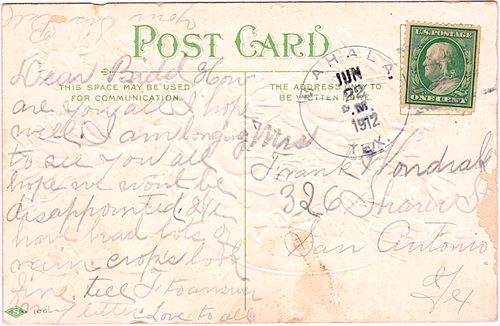 POST CARD
THIS SPACE MAY BE USED
FOR COMMUNICATION.
THE ADDRESS ONLY TO
BE WRITTEN HERE.
U.S. POSTAGE
ONE CENT
JUN
22
M.
1912
TEX.
Dear Budd How
are you all I hope
well. I am longing
to see you all
hope we wont be
disappointed. We
have had lots of
rain crops look
fine. tell F to answer
my letter Love to all
Mrs
Frank
326
San Antonio
Tex